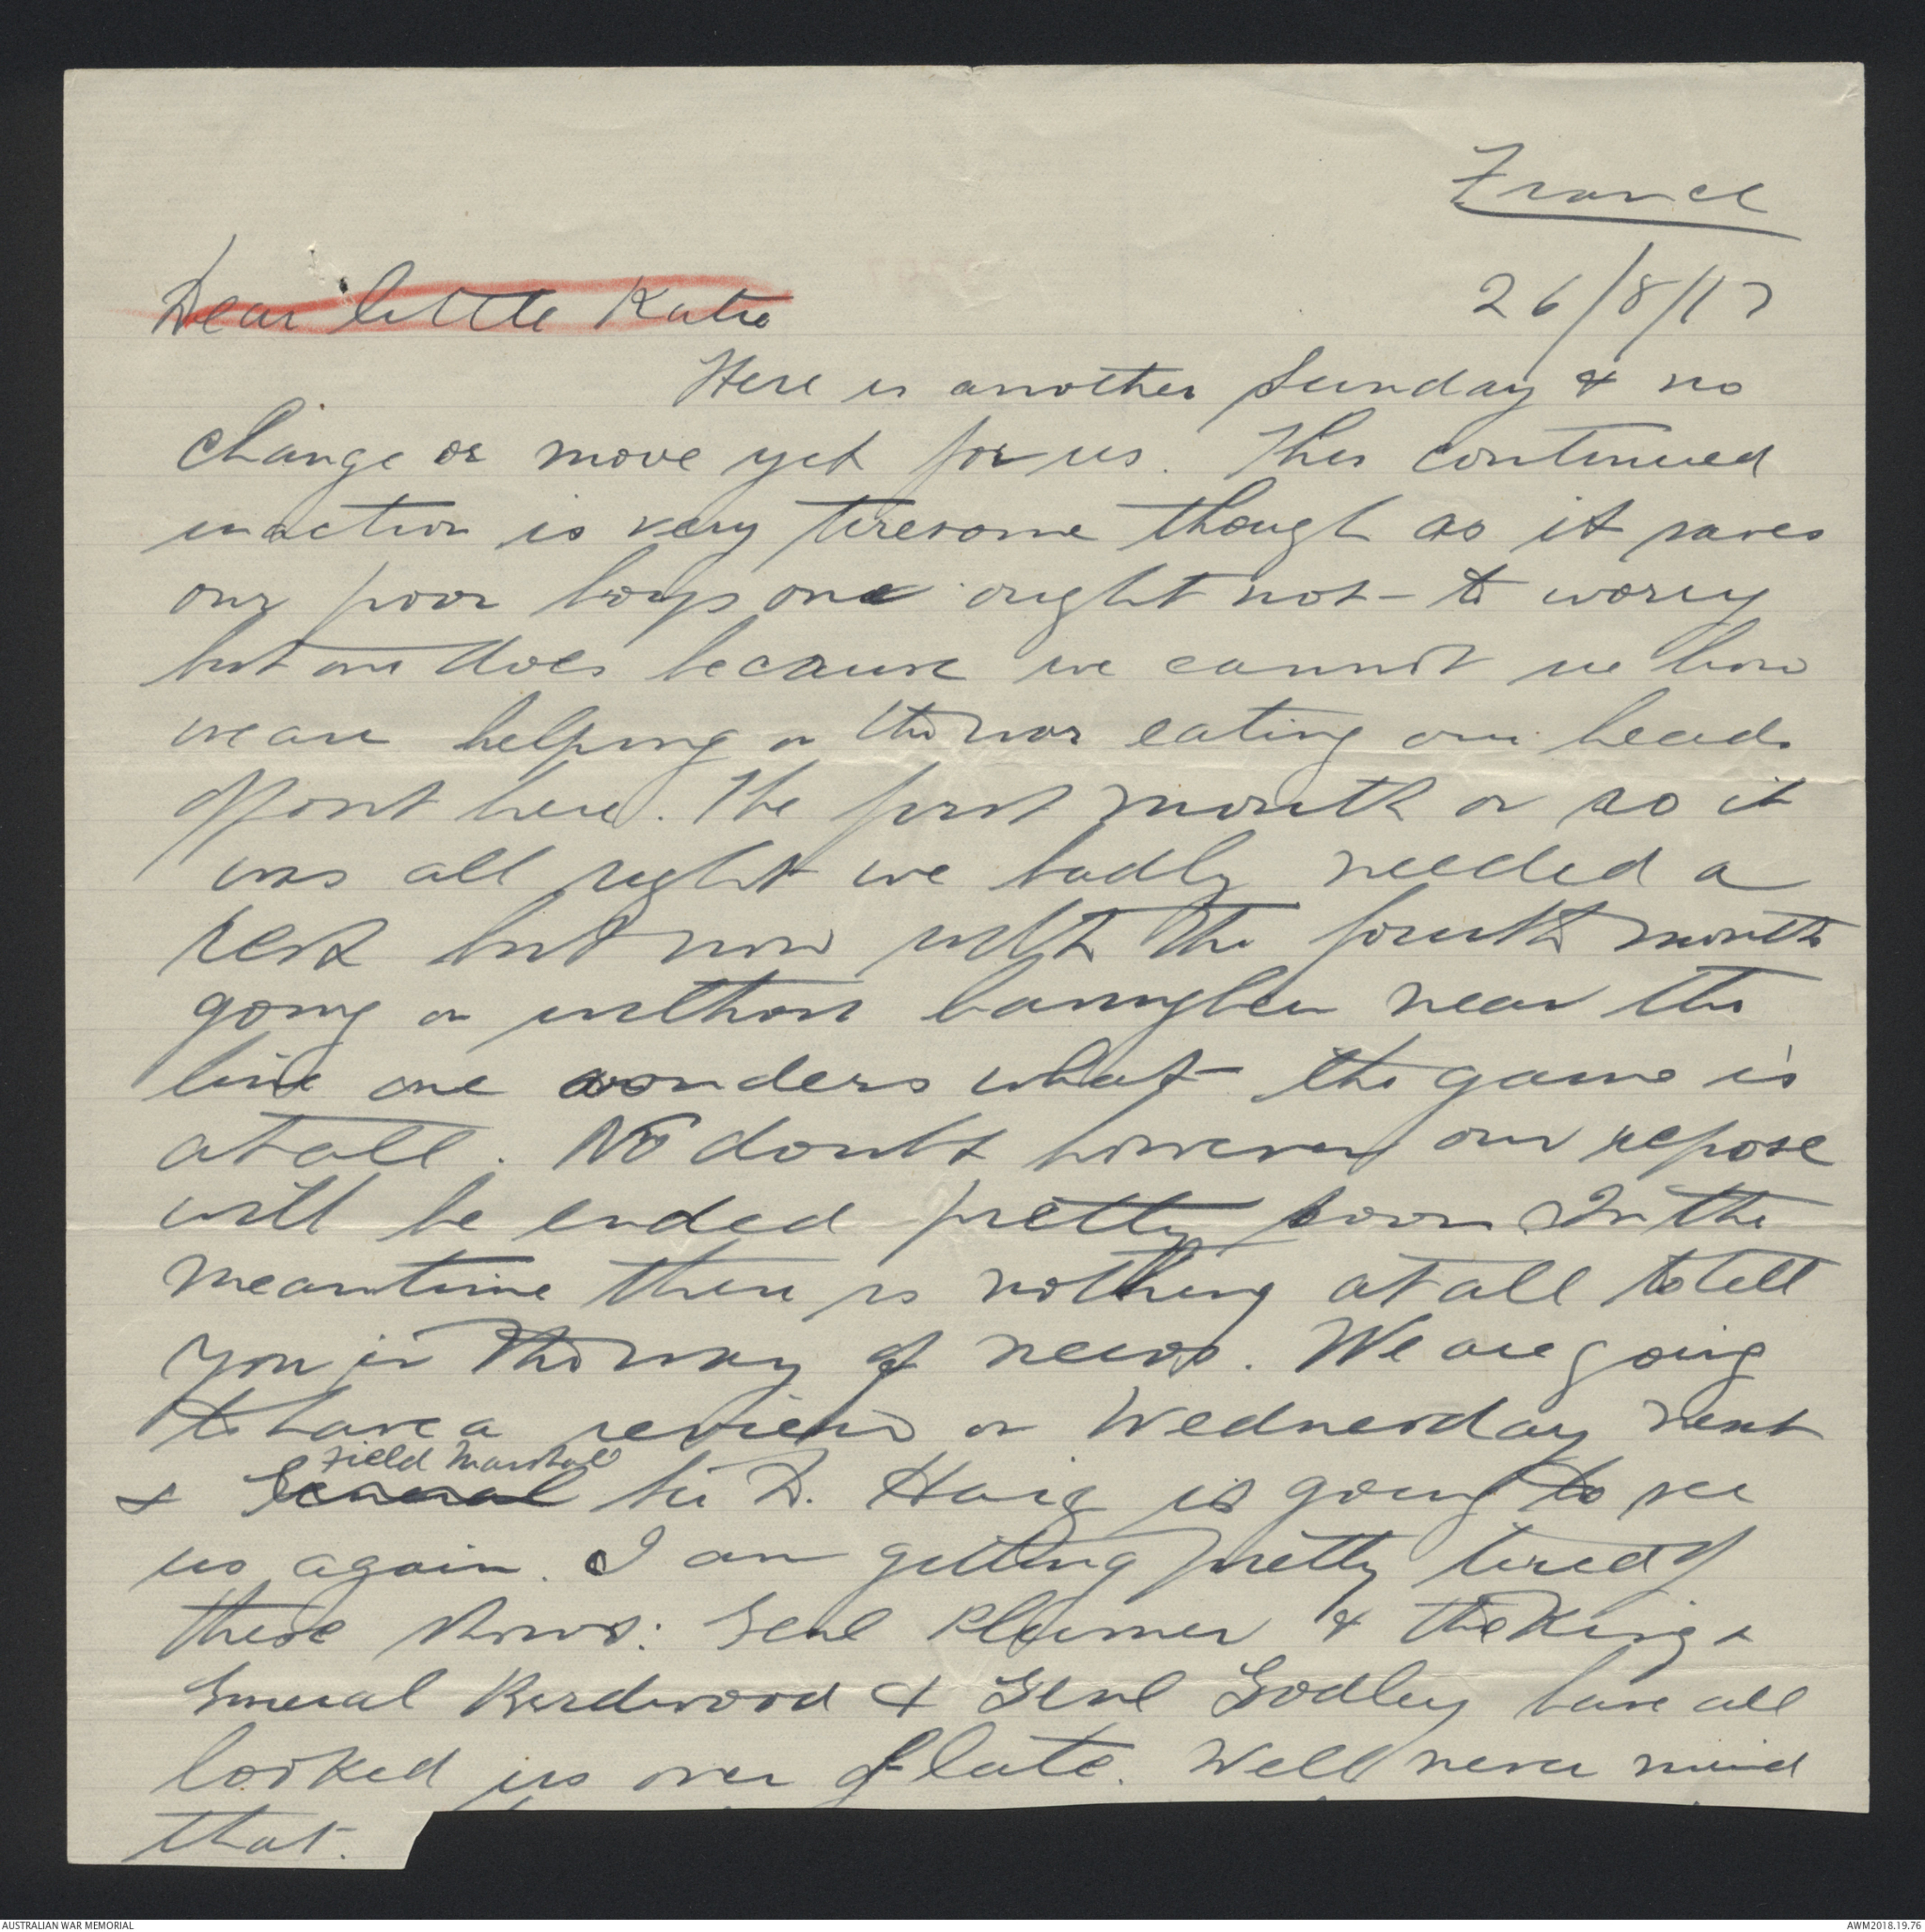 France
26/8/17
Dear little Katie
Here is another Sunday & no
change or move yet for us. This continued
inaction is very tiresome though as it saves
our poor boys one ought not to worry
but one does because we cannot see how
we are helping on the war eating our heads
off out here. The first month or so it
was all right we badly needed a
rest but now with the fourth month
going on without having been near the
line one wonders what the game is
at all. No doubt however our repose
will be ended pretty soon. In the
meantime there is nothing at all to tell
you in the way of news. We are going
to have a review on Wednesday next
Field Marshal
& General Sir D. Haig is going to see
us again. I am getting pretty tired of
these shows: Genl Plumer & the King &
General Birdwood & Genl Godley have all
looked us over of late. Well never mind
that.
AUSTRALIAN WAR MEMORIAL
AWM2018.19.76